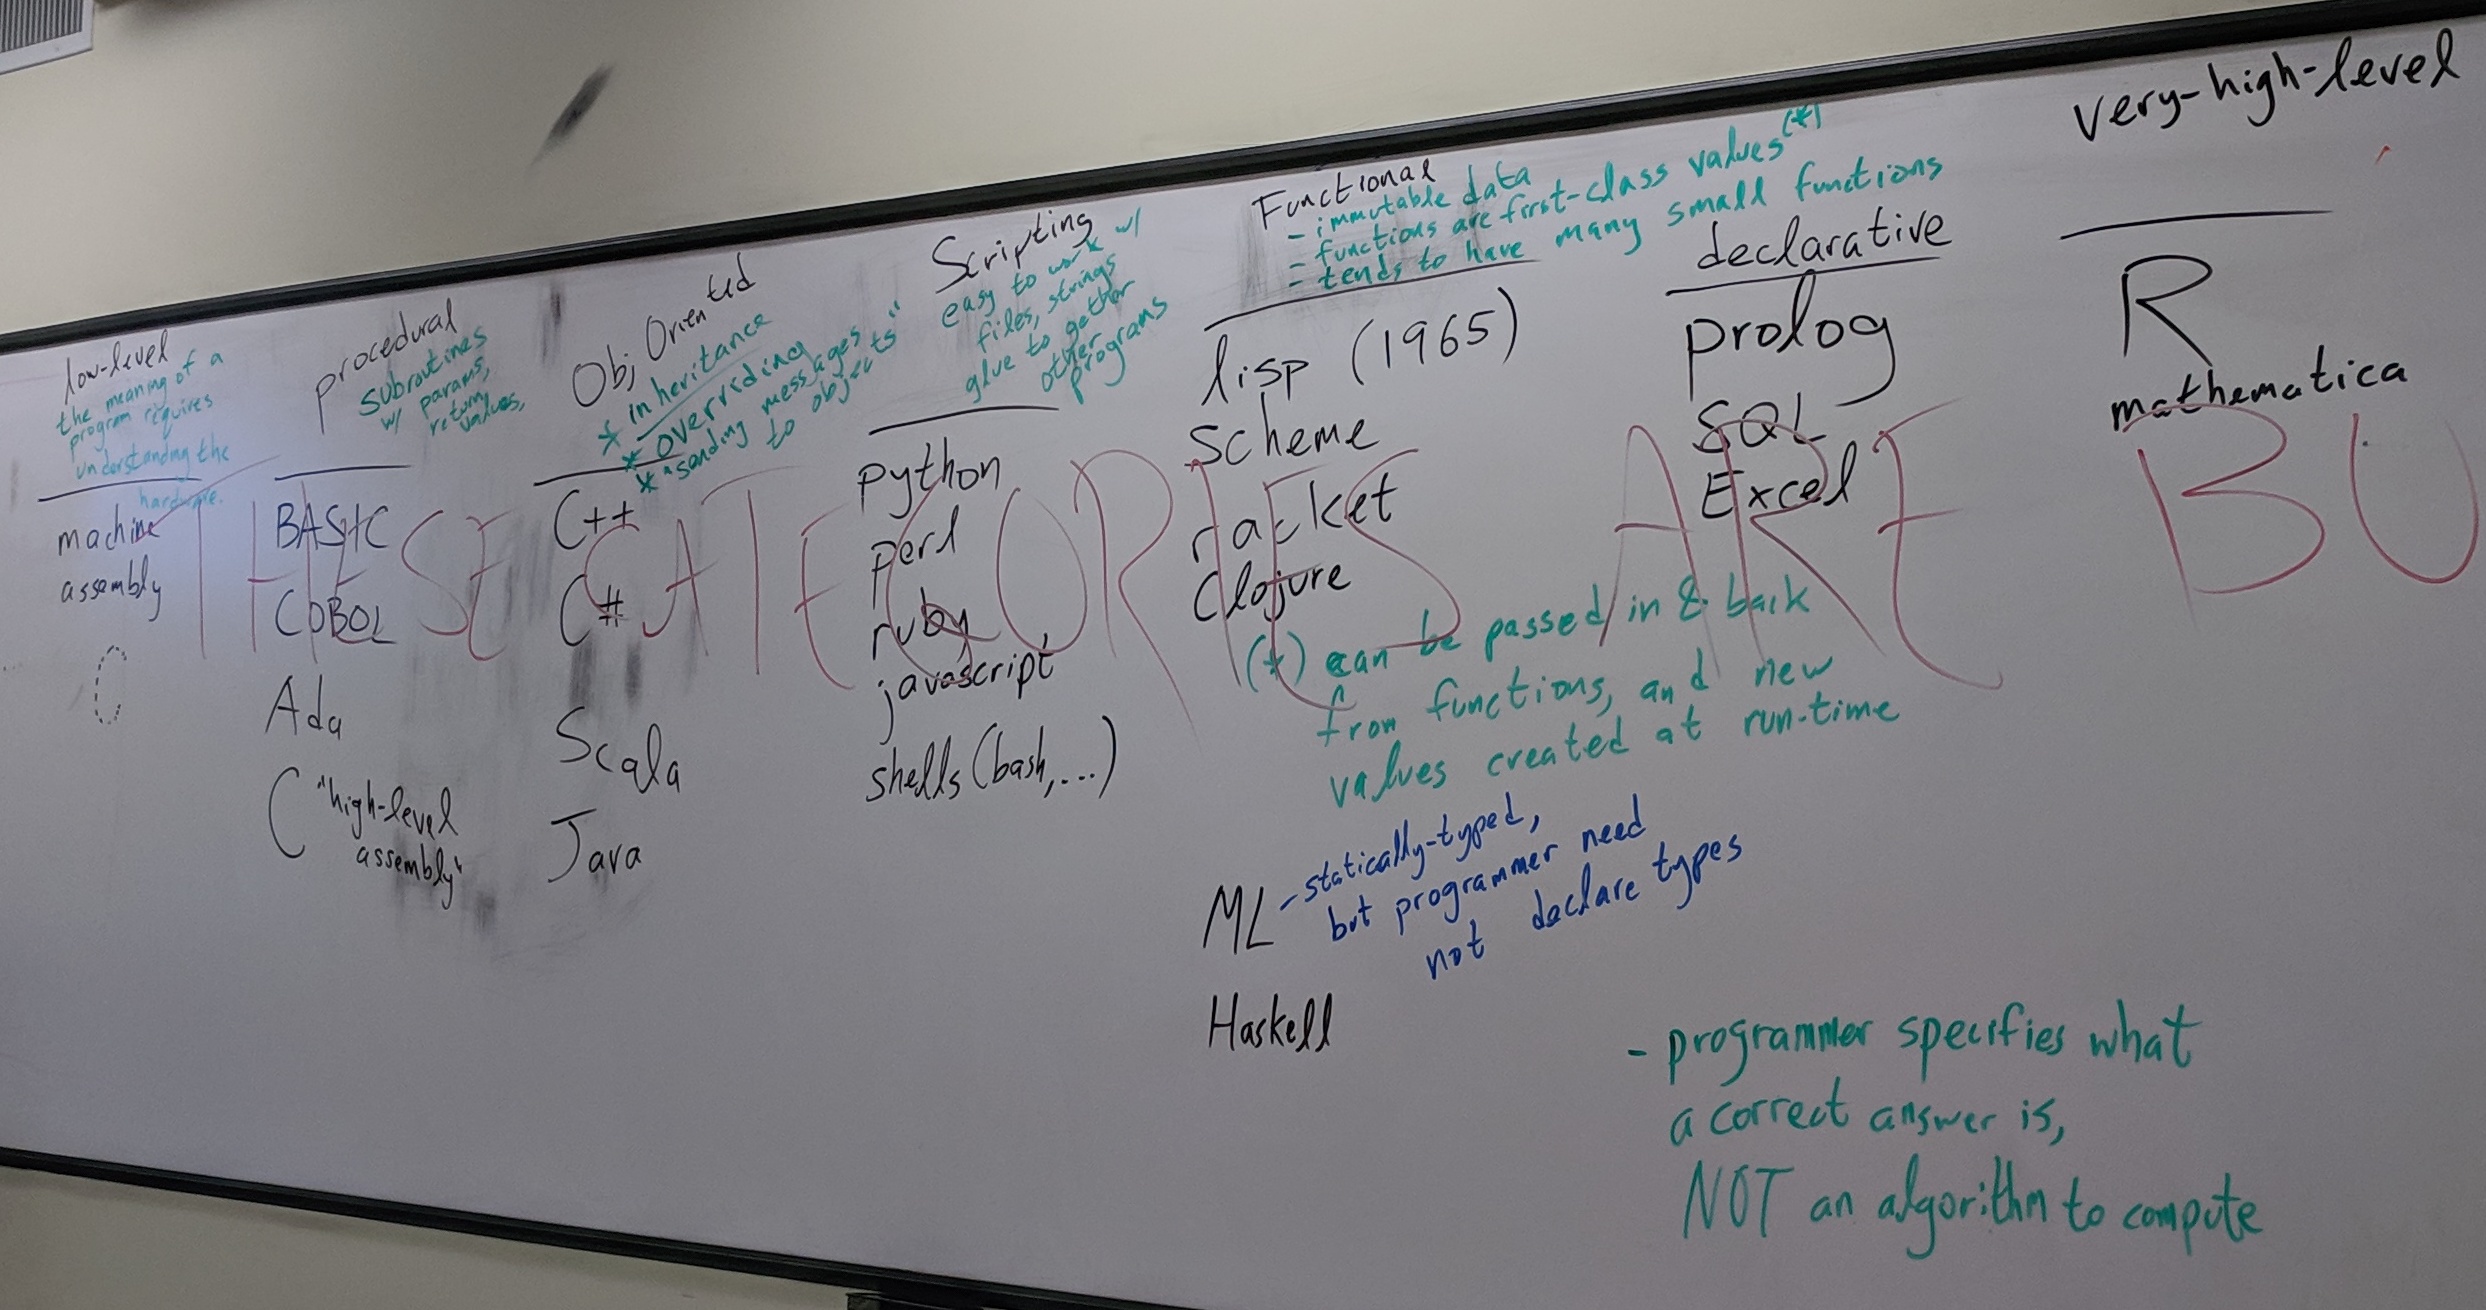 low-level
the meaning of a
program requires
understanding the
hardware.
machine
assembly
C
procedural
subroutines
w/ params,
return
values,
BASIC
COBOL
Ada
C "high-level
assembly"
Obj Oriented
* inheritance
* overriding
* "sending messages
to objects"
C++
C#
Scala
Java
Scripting
easy to work w/
files, strings
glue together
other
programs
python
perl
ruby
javascript
shells (bash,...)
Functional
- immutable data
- functions are first-class values (*)
- tends to have many small functions
lisp (1965)
scheme
racket
Clojure
(*) can be passed in & back
from functions, and new
values created at run-time
ML - statically-typed,
but programmer need
not declare types
Haskell
declarative
prolog
SQL
Excel
- programmer specifies what
a correct answer is,
NOT an algorithm to compute
very-high-level
R
mathematica
THESE CATEGORIES ARE BU